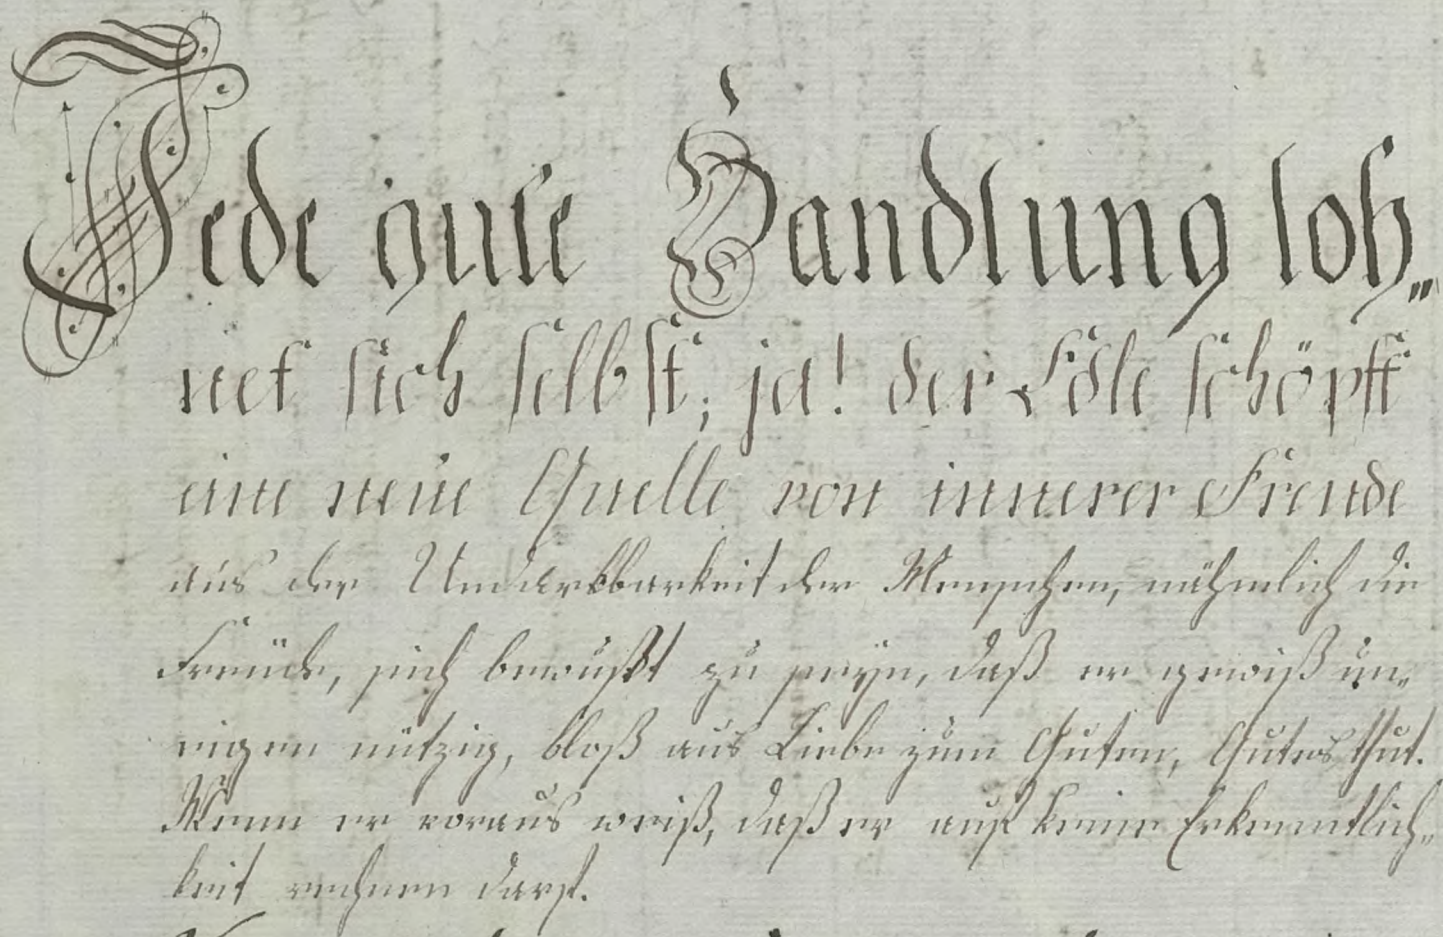 Jede gute Handlung loh„
net sich selbst; ja! der Edle schöpft
eine neue Quelle von innerer Freude
aus der Undankbarkeit der Menschen, nähmlich die
Freude, sich bewußt zu seyn, daß er gewiß un„
eigen nützig, bloß aus Liebe zum Guten, Gutes thut.
Wenn er voraus weiß, daß er auf keine Erkenntlich„
keit rechnen darf.